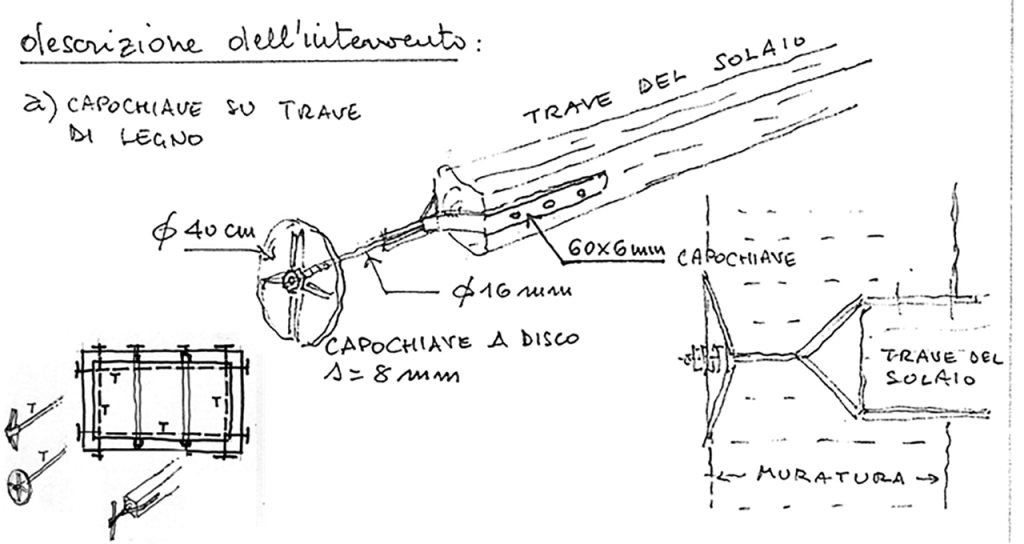 descrizione dell'intervento:
a) CAPOCHIAVE SU TRAVE
DI LEGNO
TRAVE DEL SOLAIO
ϕ 40 cm
60x6mm
ϕ 16 mm
CAPOCHIAVE A DISCO
s = 8 mm
CAPOCHIAVE
TRAVE DEL
SOLAIO
MURATURA
T
T
T
T
T
T